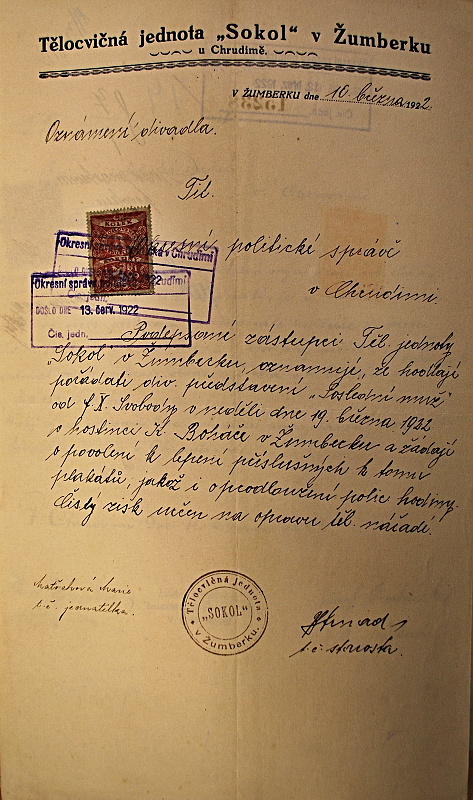 Tělocvičná jednota „Sokol" v Žumberku
u Chrudimě.
V ŽUMBERKU dne 10 března 1922.
Oznámení divadla.
Tit.
Okresní politické správě
v Chrudimi.
KOLEK
Okresní správa politická v Chrudimi
Okresní správa 1922 Chrudimi
DOŠLO DNE 13. červ. 1922
Čís. jedn.
Podepsaní zástupci Těl. jednoty
„Sokol" v Žumberku, oznamuje, že hodlají
pořádati div. představení „Poslední muž"
od F. X. Svobody v neděli dne 19. března 1922
v hostinci K. Boháče v Žumberku a žádají
o povolení k lepení příslušných k tomu
plakátů, jakož i o prodloužení polic. hodiny.
Čistý zisk určen na opravu těl. nářadí.
Marie
t. č. jednatelka.
Tělocvičná jednota
„SOKOL"
v Žumberku.
t. č. starosta.